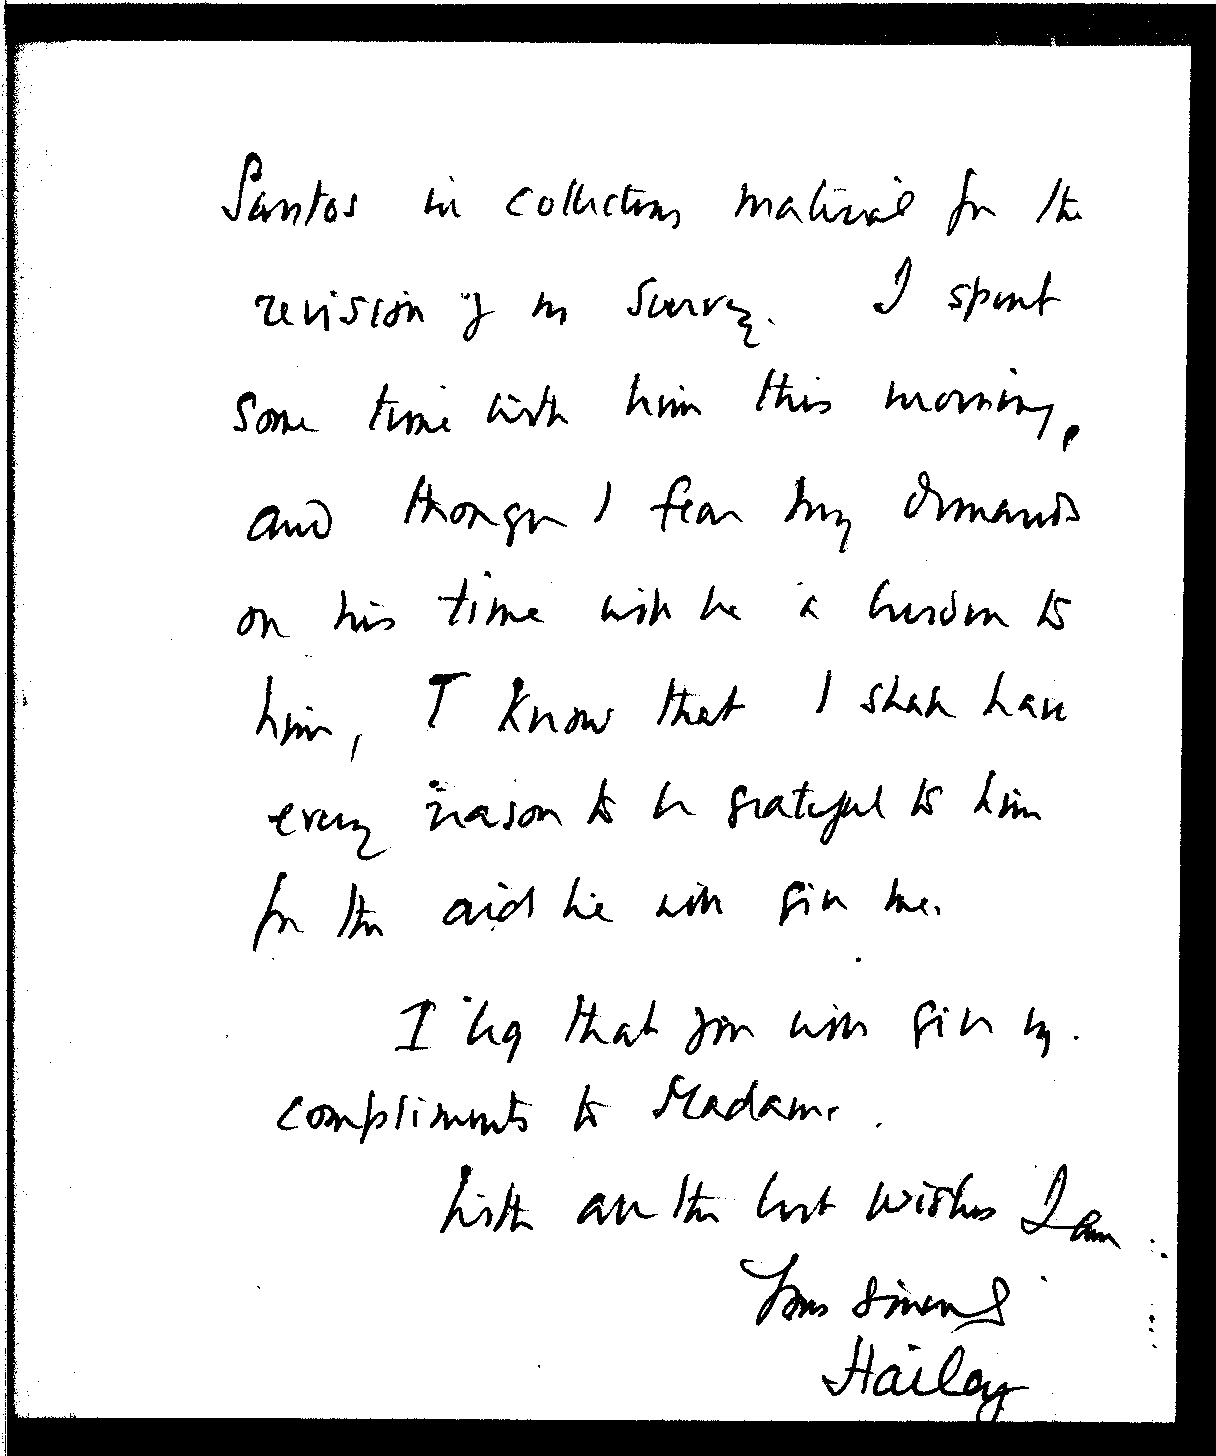 Santos in collecting material for the
revision of my Survey. I spent
some time with him this morning,
and though I fear my demands
on his time will be a burden to
him, I know that I shall have
every reason to be grateful to him
for the aid he will give me.
I beg that you will give my
compliments to Madame.
With all the best wishes I am
Yours sincerely
Hailey